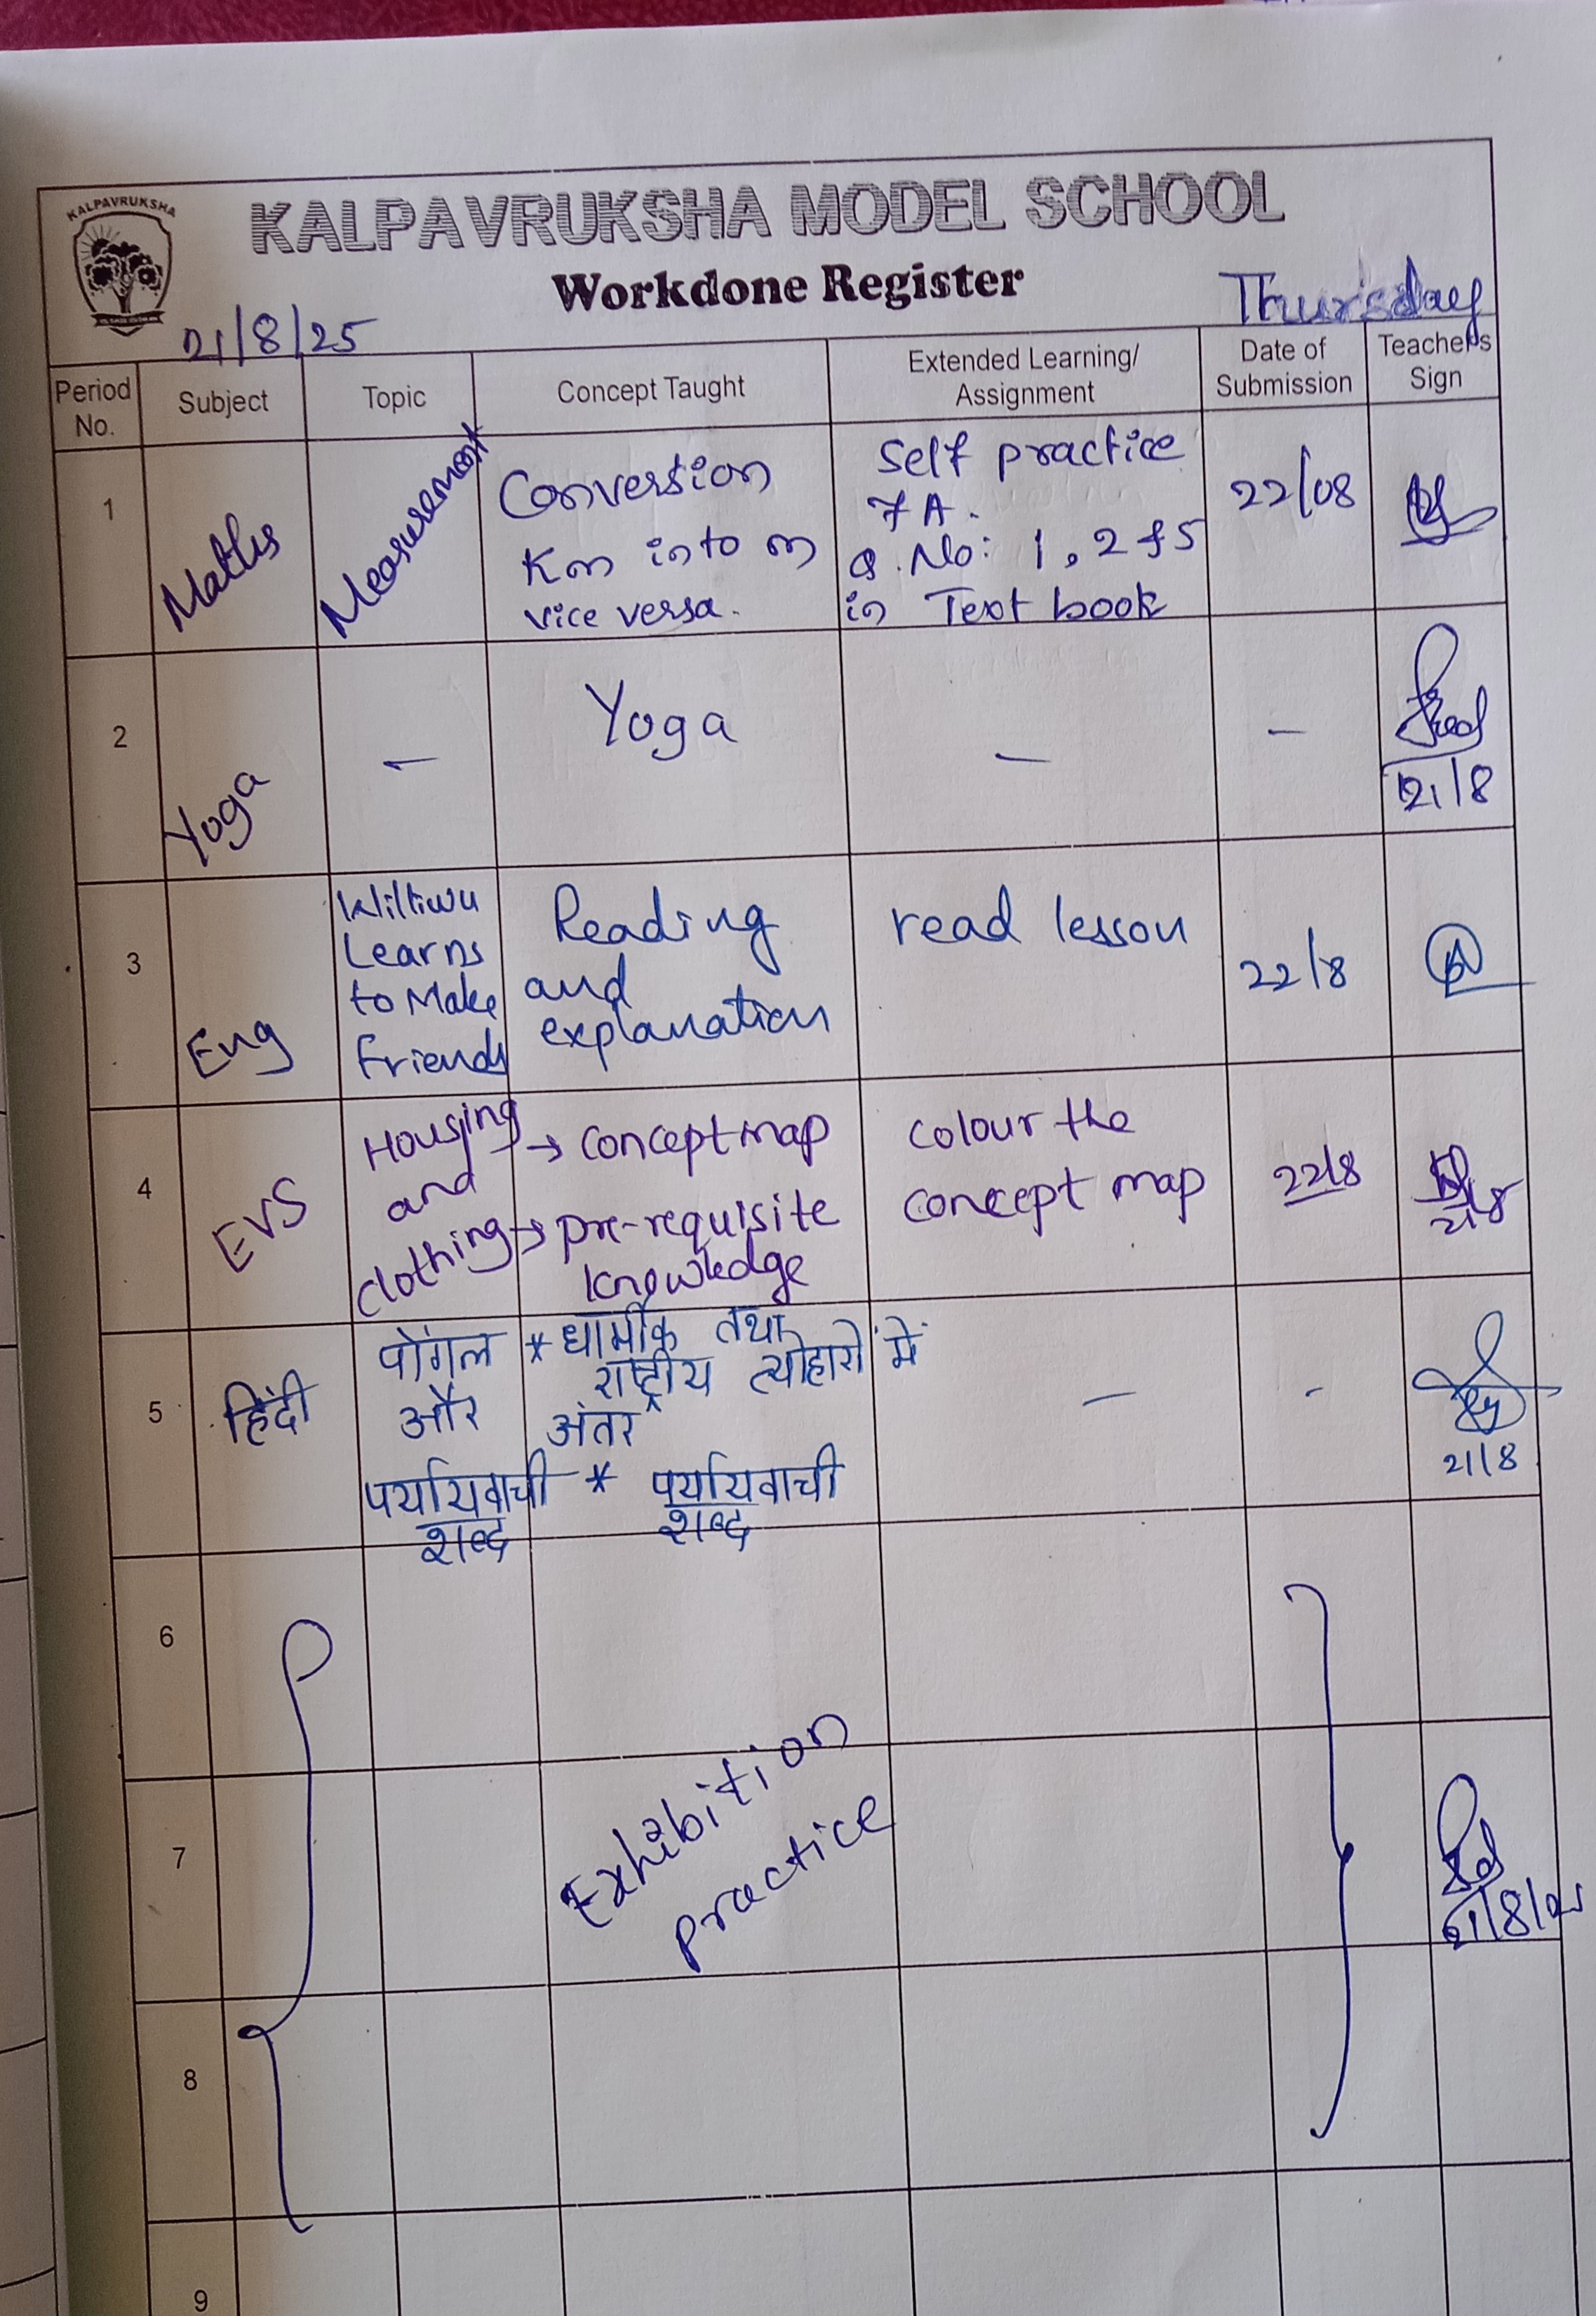 KALPAVRUKSHA
KALPAVRUKSHA MODEL SCHOOL
Workdone Register
21/8/25
Thursday
Period No.
Subject
Topic
Concept Taught
Extended Learning/
Assignment
Date of
Submission
Teacher's
Sign
1
Maths
Measurement
Conversion
Km into m
vice versa.
Self practice
7 A.
Q. No: 1, 2 & 5
in Text book
22/08
2
Yoga
—
Yoga
—
—
21/8
3
Eng
Learns
to Make
Friends
Reading
and
explanation
read lesson
22/8
4
EVS
Housing
and
clothing
→ concept map
→ pre-requisite
knowledge
colour the
concept map
22/8
21/8
5
हिंदी
पोंगल
और
पर्यायवाची
शब्द
* धार्मीक तथा
राष्ट्रीय त्योहारों में
अंतर
* पर्यायवाची
शब्द
—
-
21/8
6
7
Exhibition
practice
21/8/25
8
9